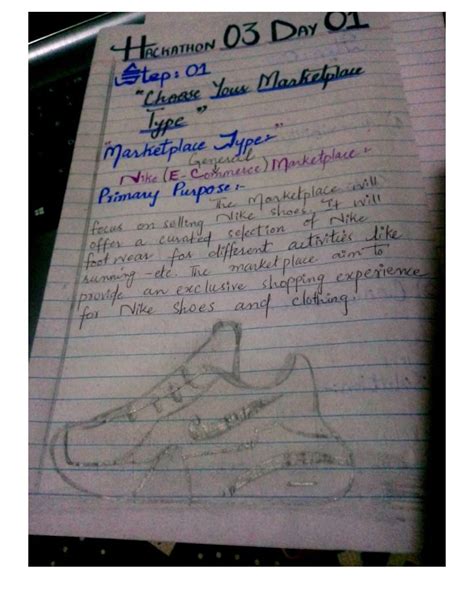 HACKATHON 03 DAY 01
Step: 01
"Choose Your Marketplace
Type"
"Marketplace Type:"
General
Nike (E-Commerce) Marketplace:-
Primary Purpose:-
The Marketplace will
focus on selling Nike shoes. It will
offer a curated selection of Nike
footwear for different activities like
running -etc. The marketplace aim to
provide an exclusive shopping experience
for Nike shoes and clothing.